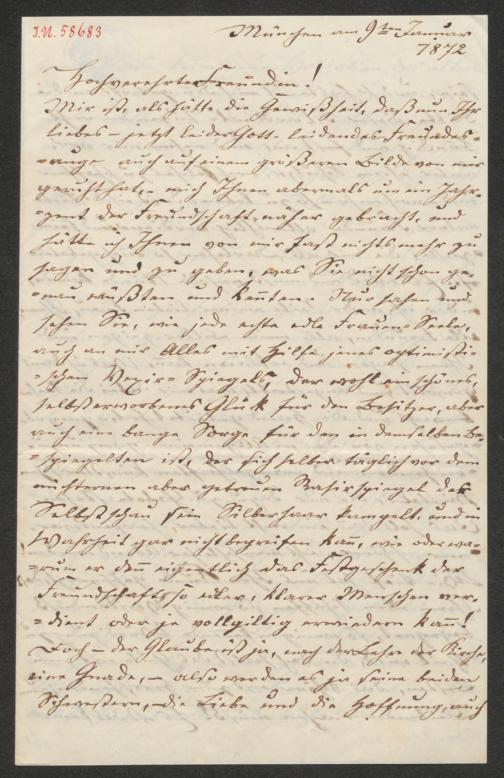 I.N. 58683
München am 9ten Januar
1872
Hochverehrte Freundin!
Mir ist, als hätte die Gewißheit, daß nun Ihr
liebes – jetzt leider Gott leidendes Freundes-
-auge auch auf einem größeren Bilde von mir
geruht hat, – mich Ihnen abermals um ein Jahr-
-zent der Freundschaft näher gebracht, und
hätte ich Ihnen von mir fast nichts mehr zu
sagen und zu geben, was Sie nicht schon ge-
-nau wüßten und kennten. Nur sahen und
sehen Sie, wie jede echte edle Frauen-Seele,
auch an mir Alles mit Hilfe jenes optimisti-
-schen Vexir-Spiegels, der wohl ein schönes,
selbsterworbenes Glück für den Besitzer, aber
auch eine bange Sorge für den in demselben be-
-spiegelten ist, der sich selber täglich vor dem
nüchternen aber getreuen Rasirspiegel der
Selbstschau sein Silberhaar kampelt, und in
Wahrheit gar nicht begreifen kann, wie oder wa-
-rum er denn eigentlich das Festgeschenk der
Freundschaft so edler, klarer Menschen ver-
-dient oder je vollgiltig erwiedern kann!
Doch – der Glaube ist ja, nach der Lehre der Kirche,
eine Gnade, – also werden es ja seine beiden
Schwestern, – die Liebe und die Hoffnung, auch